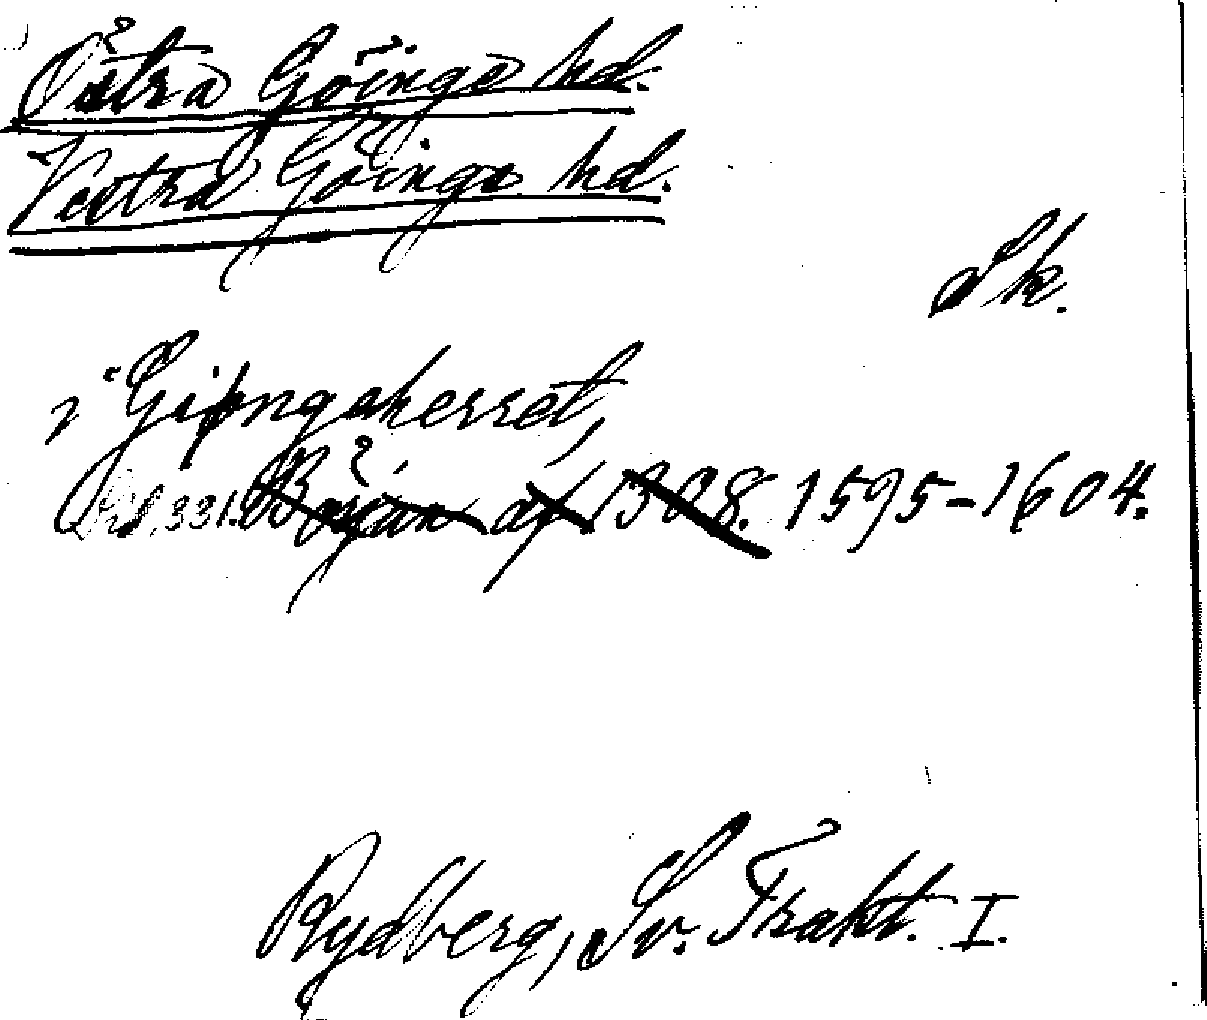 Östra Göinge hd.
Vestra Göinge hd.
Sk.
i Giøngeherret,
331. Början af 1308. 1595-1604.
Rydberg, Sv. Trakt. I.